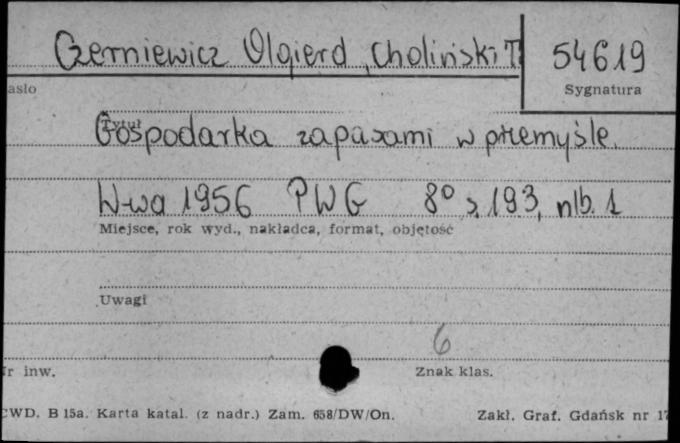 Czerniewicz Olgierd, Choliński T.
54619
asło
Sygnatura
Tytuł
Gospodarka zapasami w przemyśle.
W-wa 1956 PWG 8° s. 193, nlb. 1
Miejsce, rok wyd., nakładca, format, objętość
Uwagi
6
Nr inw.
Znak klas.
CWD. B 15a. Karta katal. (z nadr.) Zam. 658/DW/On.
Zakł. Graf. Gdańsk nr 17